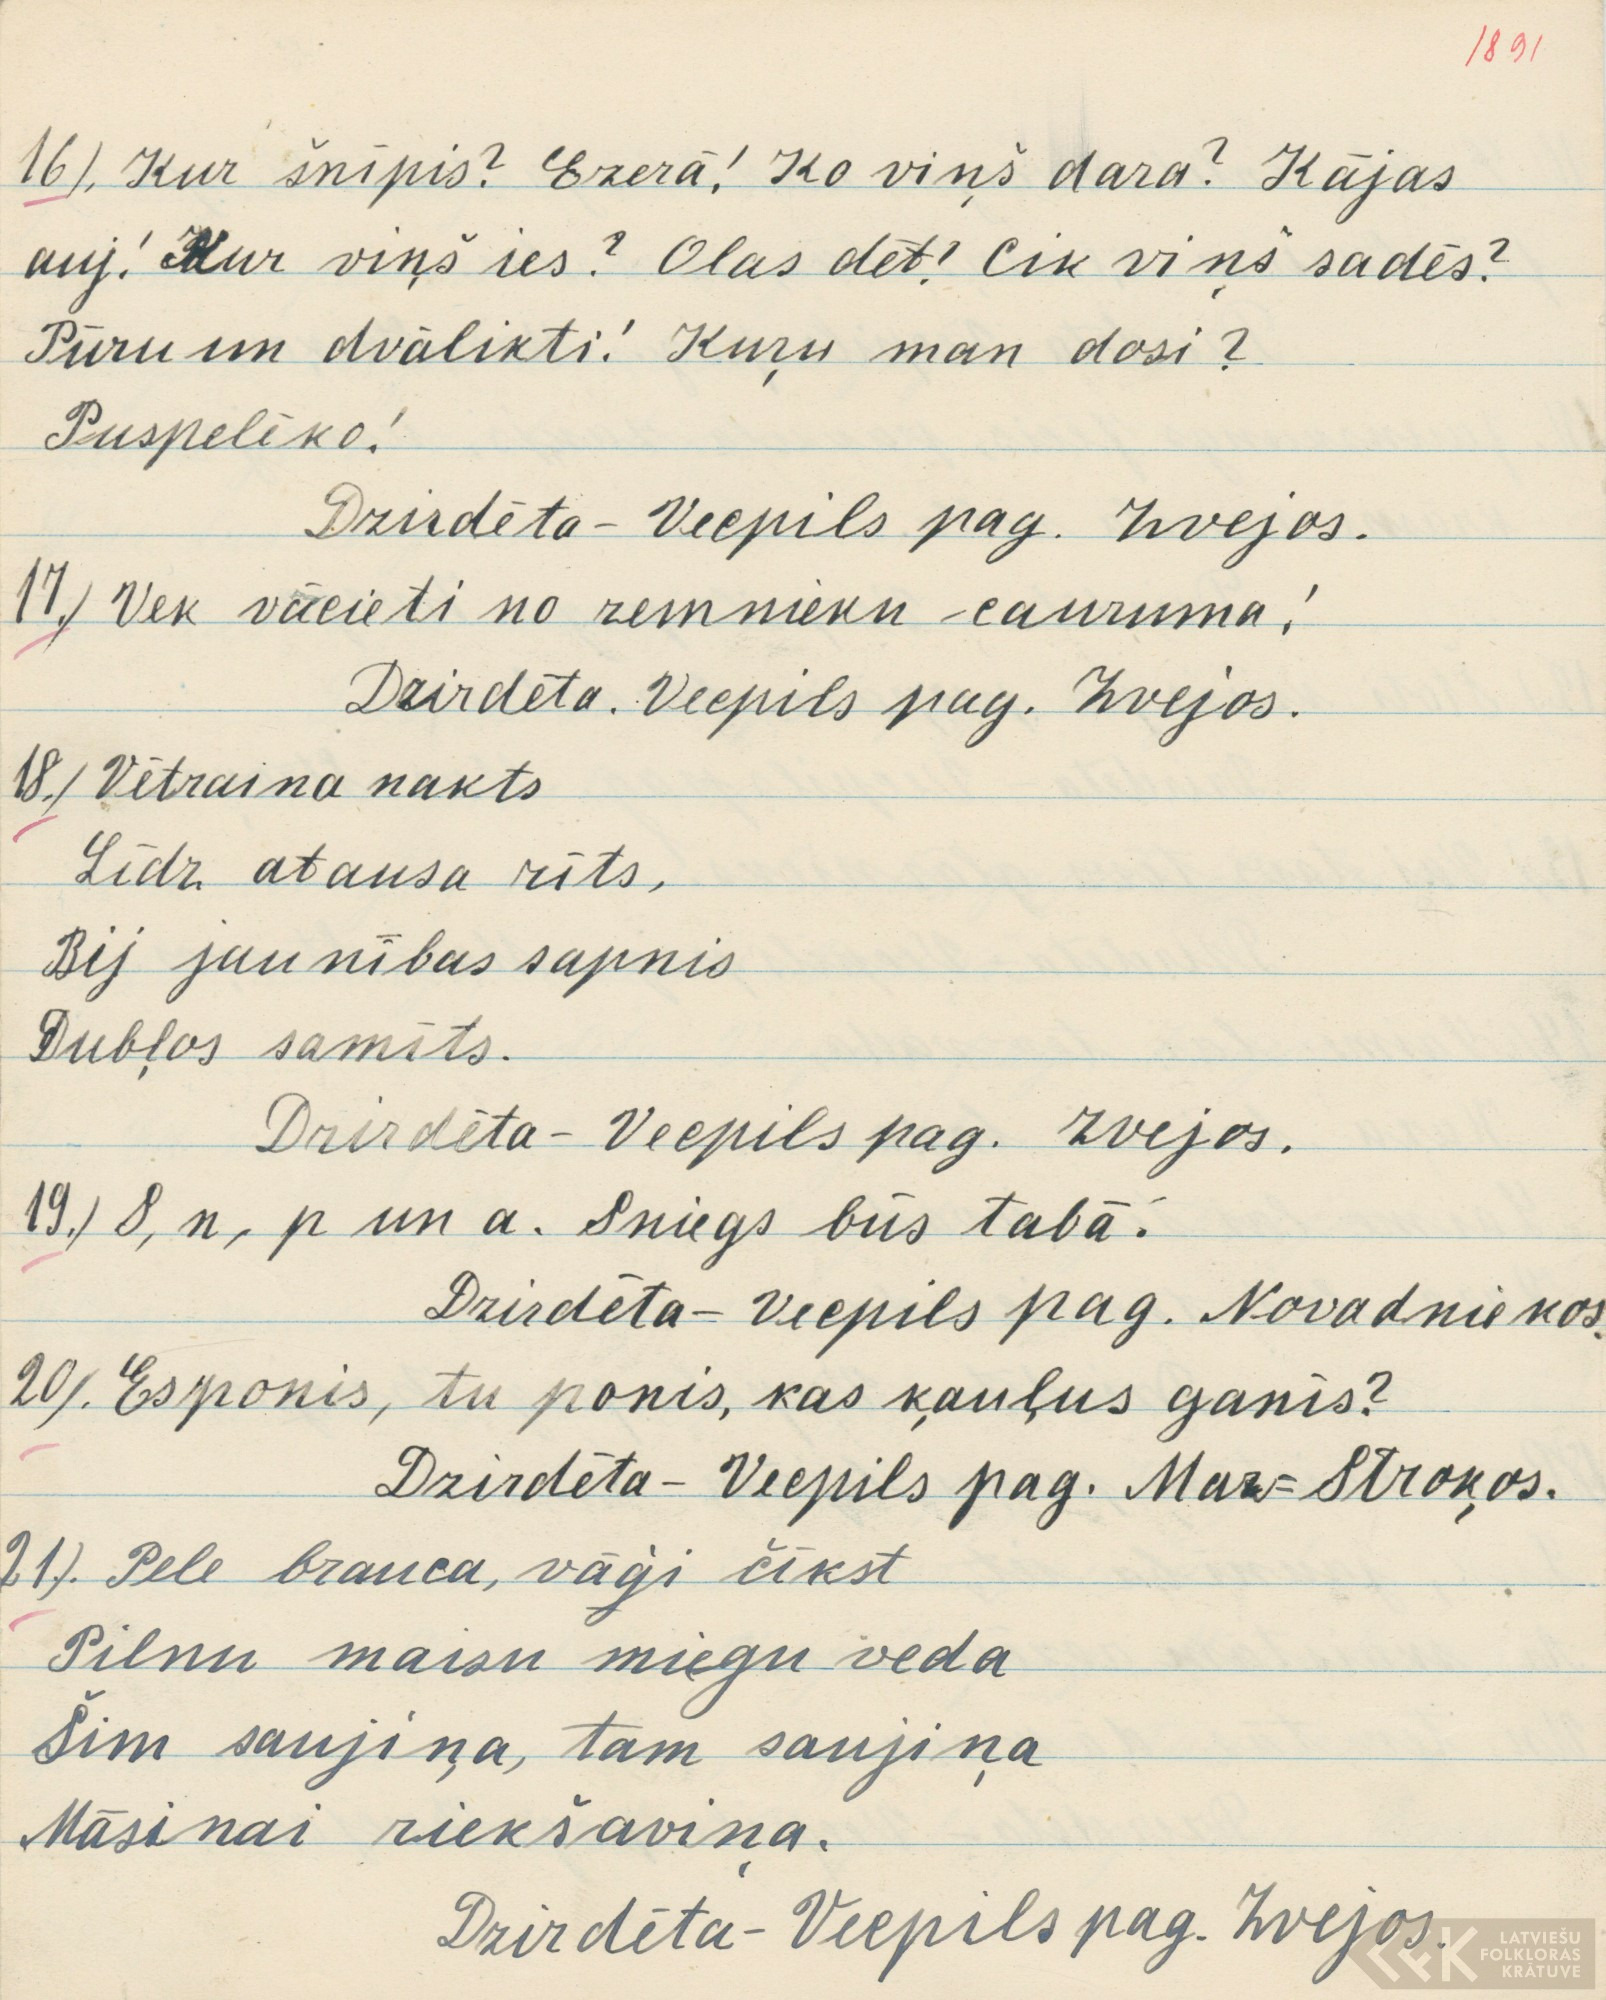 1891
16). Kur šnīpis? Ezerā! Ko viņš dara? Kājas
auj! Kur viņš ies? Olas dēt! Cik viņš sadēs?
Pūru un dvālikti! Kuŗu man dosi?
Puspelēko!
Dzirdēta – Vecpils pag. Zvejos.
17.) Vek vācieti no zemnieku cauruma!
Dzirdēta. Vecpils pag. Zvejos.
18.) Vētraina nakts
Līdz atausa rīts,
Bij jaunības sapnis
Dubļos samīts.
Dzirdēta – Vecpils pag. Zvejos.
19.) S, n, p un a. Sniegs būs tabā!
Dzirdēta – Vecpils pag. Novadniekos.
20). Es ponis, tu ponis, kas ķauļus ganīs?
Dzirdēta – Vecpils pag. Maz=Stroķos.
21). Pele brauca, vāģi čīkst
Pilnu maisu miegu veda
Šim saujiņa, tam saujiņa
Māsinai riekšaviņa.
Dzirdēta – Vecpils pag. Zvejos.
LATVIEŠU
FOLKLORAS
KRĀTUVE